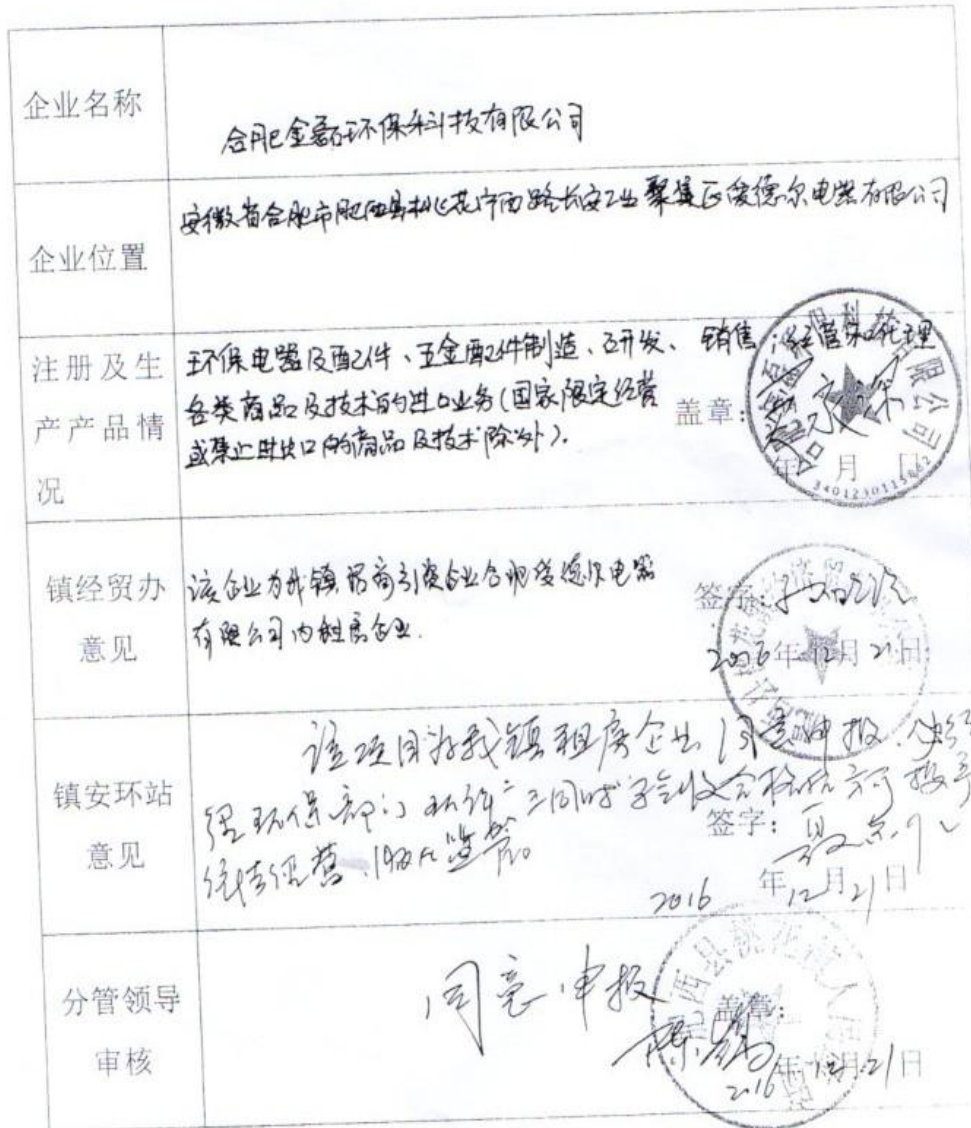 企业名称
合肥金磊环保科技有限公司
企业位置
安徽省合肥市肥西县桃花镇 西路长安工业聚集区爱德尔电器有限公司
注册及生
产产品情
况
环保电器及配件、五金配件制造、研发、销售;经营和代理
各类商品及技术的进口业务(国家限定经营
或禁止进出口的商品及技术除外)。
盖章:
年 月 日
3401230115862
镇经贸办
意见
该企业为我镇招商引资企业合肥爱德尔电器
有限公司内租房企业.
签字:
2016年12月21日
镇安环站
意见
该项目为我镇租房企业 同意申报
环保部门 三同时 验收合格后方可
签字:
2016年12月21日
分管领导
审核
同意申报
盖章:
2016年12月21日